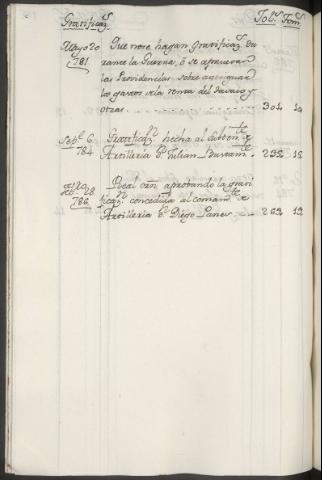 Gratificaz.n Fol.s Tom.s
Mayo 20 Que no se hagan Gratificaz.s Du-
781 rante la Guerra, ò se aprueven
las Providencias, sobre
los gastos de la renta del Tavaco y
otras 301 14
Sep.e 6 Gratificaz.n hecha al Subten.te de
784 Artilleria D.n Julian Bustam.te 235 15
28 Real orn aprobando la grati-
786 ficaz.n concedida al Coman.te de
Artilleria D.n Diego Lanes 262 12